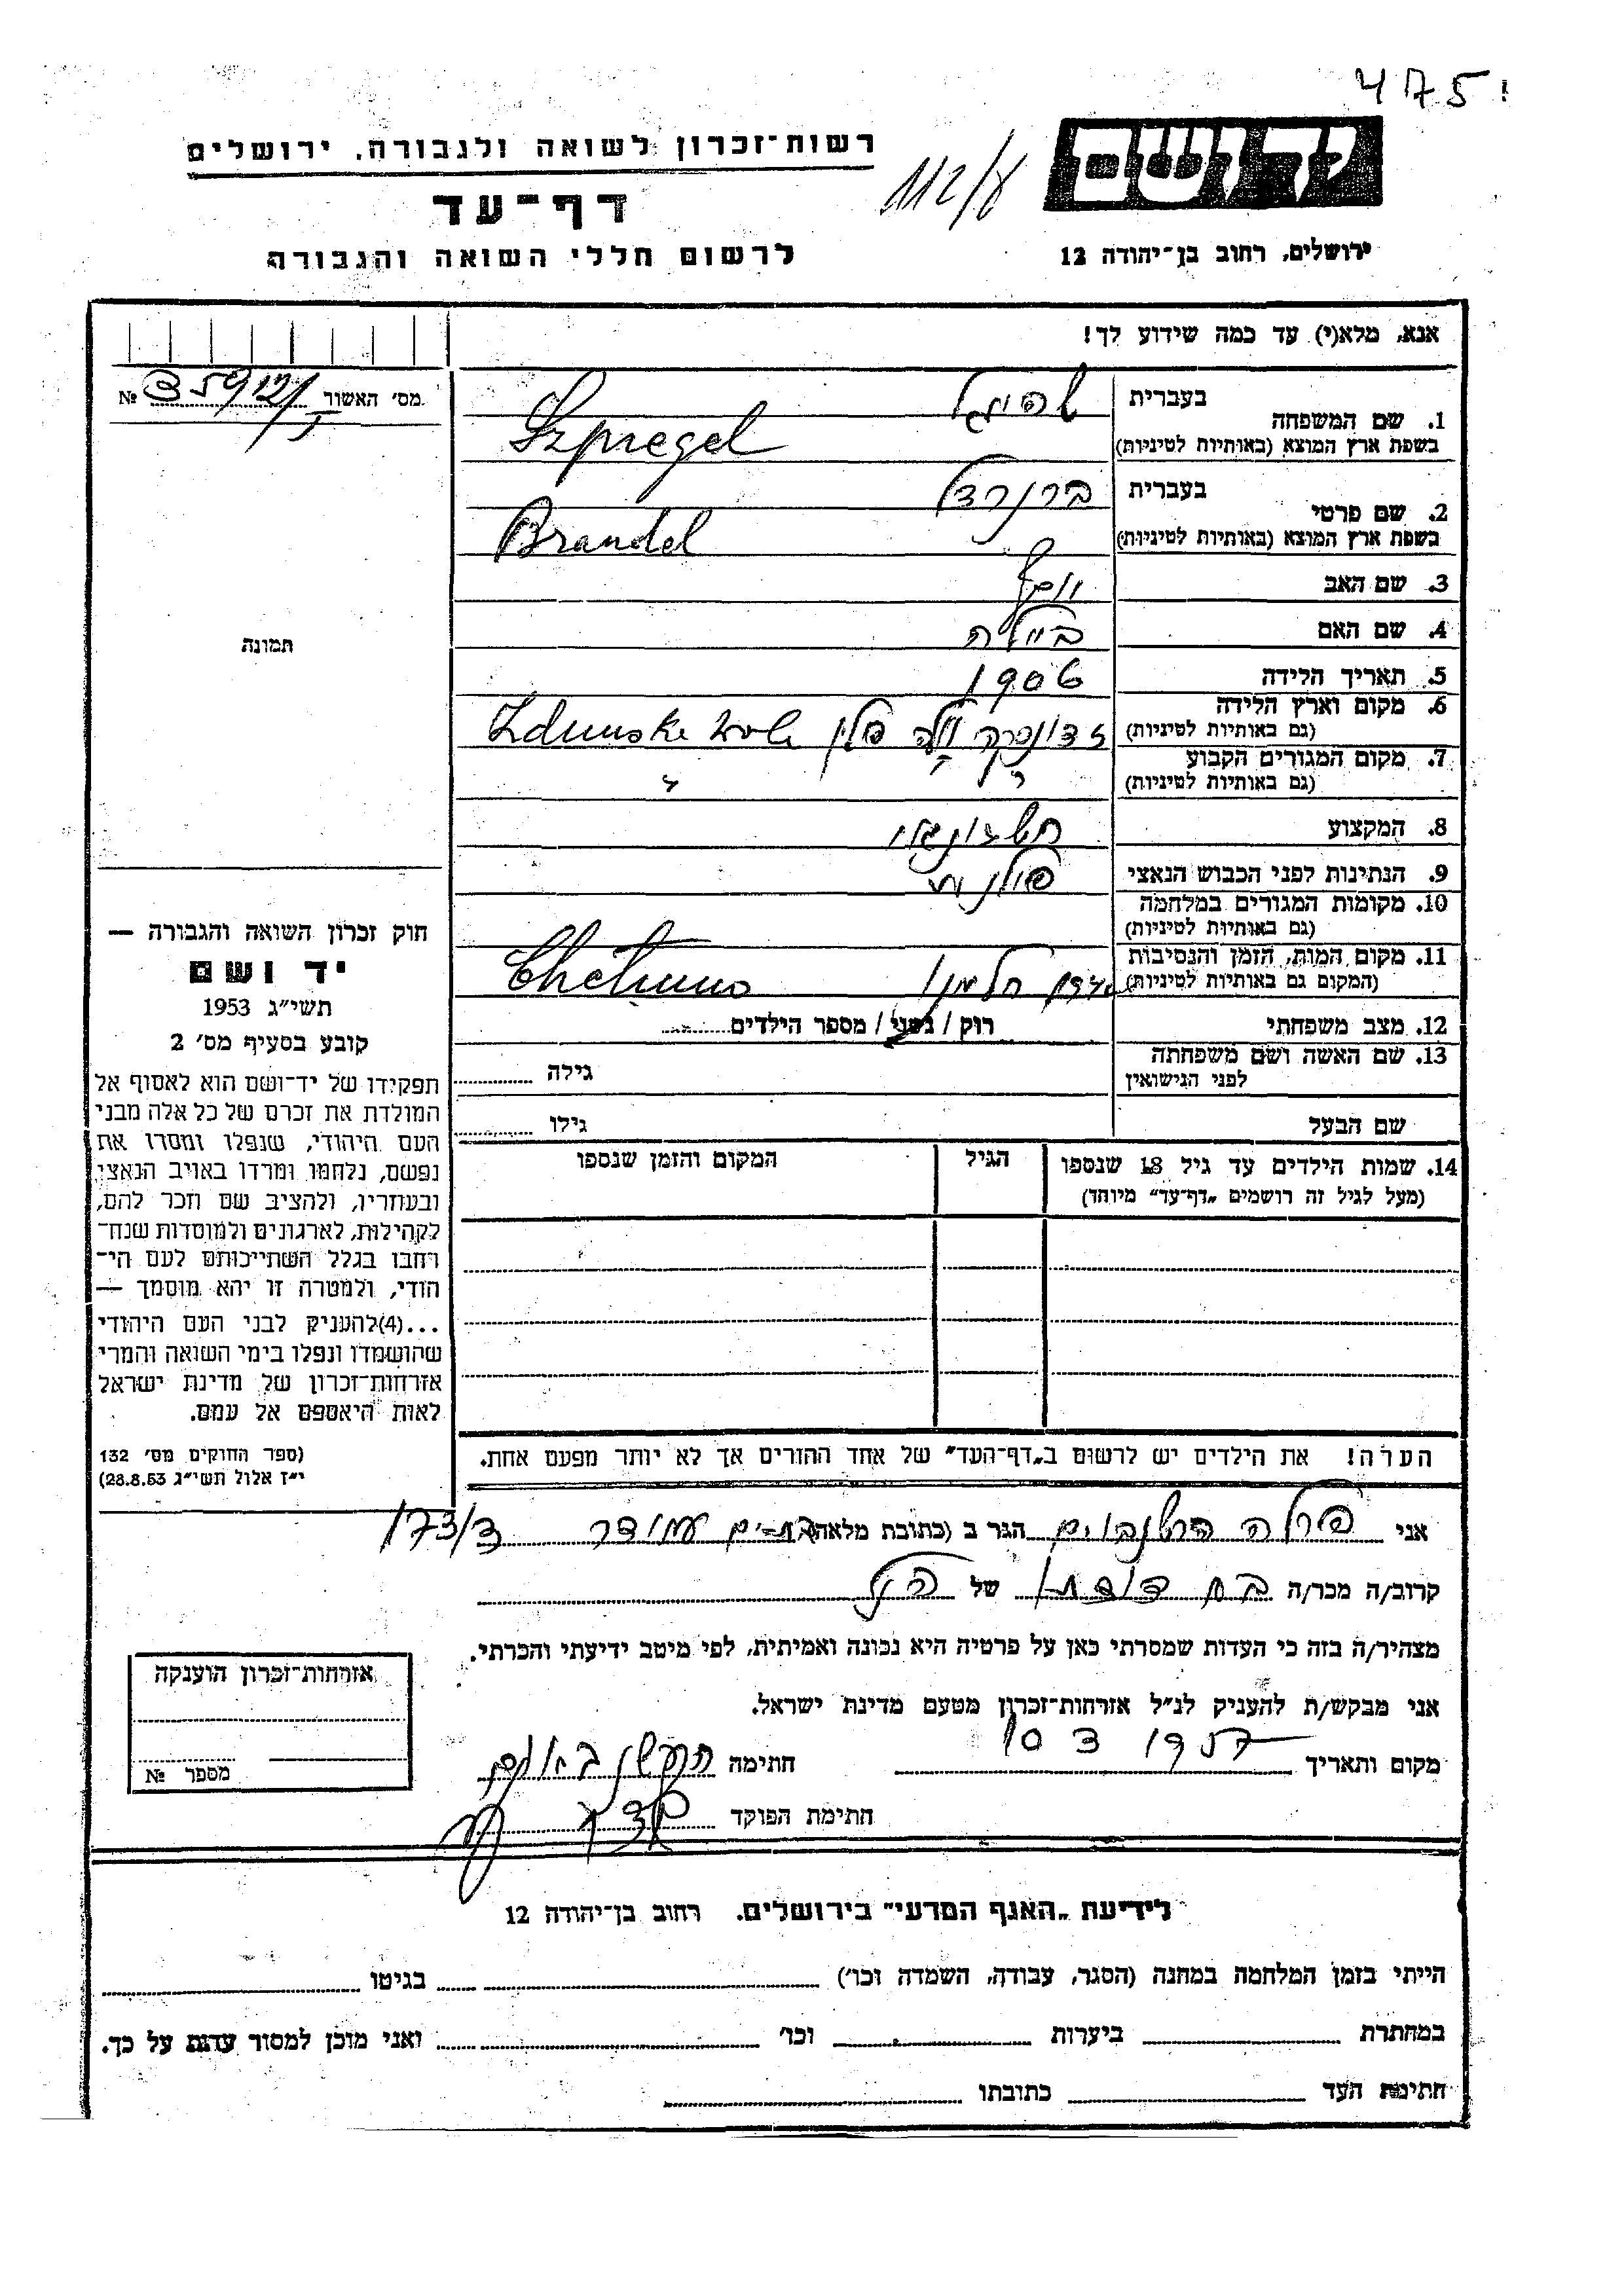 475
רשות־זכרון לשואה ולגבורה, ירושלים
דף־עד
לרשום חללי השואה והגבורה
112/8
יד ושם
ירושלים, רחוב בן־יהודה 12
אנא, מלא(י) עד כמה שידוע לך!
מס' האשור № 35912/I
1. שם המשפחה
בעברית שפיגל
בשפת ארץ המוצא (באותיות לטיניות) Szpiegel
2. שם פרטי
בעברית
בשפת ארץ המוצא (באותיות לטיניות) Brandel
3. שם האב יוסף
4. שם האם ביילה
5. תאריך הלידה 1906
6. מקום וארץ הלידה
(גם באותיות לטיניות) זדונסקה וולה פולין Zdunska
7. מקום המגורים הקבוע
(גם באותיות לטיניות) " "
8. המקצוע
9. הנתינות לפני הכבוש הנאצי פולנית
10. מקומות המגורים במלחמה
(גם באותיות לטיניות)
11. מקום המות, הזמן והנסיבות
(המקום גם באותיות לטיניות) חלמנו Chełmno
12. מצב משפחתי רוק / נשוי / מספר הילדים
13. שם האשה ושם משפחתה
לפני הנישואין גילה
שם הבעל גילו
14. שמות הילדים עד גיל 18 שנספו
(מעל לגיל זה רושמים „דף־עד" מיוחד)
הגיל
המקום והזמן שנספו
תמונה
חוק זכרון השואה והגבורה —
יד ושם
תשי"ג 1953
קובע בסעיף מס' 2
תפקידו של יד־ושם הוא לאסוף אל
המולדת את זכרם של כל אלה מבני
העם היהודי, שנפלו ומסרו את
נפשם, נלחמו ומרדו באויב הנאצי
ובעוזריו, ולהציב שם וזכר להם,
לקהילות, לארגונים ולמוסדות שנח־
רבו בגלל השתייכותם לעם הי־
הודי, ולמטרה זו יהא מוסמך —
...(4)להעניק לבני העם היהודי
שהושמדו ונפלו בימי השואה והמרי
אזרחות־זכרון של מדינת ישראל
לאות היאספם אל עמם.
(ספר החוקים מס' 132
י"ז אלול תשי"ג 28.8.53)
הערה! את הילדים יש לרשום ב„דף־העד" של אחד ההורים אך לא יותר מפעם אחת.
אני פרלה הרשנבוים הגר ב (כתובת מלאה) בת-ים עמידר 173/3
קרוב/ה מכר/ה בת דודתו של הנ"ל
מצהיר/ה בזה כי העדות שמסרתי כאן על פרטיה היא נכונה ואמיתית, לפי מיטב ידיעתי והכרתי.
אני מבקש/ת להעניק לנ"ל אזרחות־זכרון מטעם מדינת ישראל.
מקום ותאריך 10 3 1957 חתימה
חתימת הפוקד
אזרחות־זכרון הוענקה
מספר №
לידיעת „האגף המדעי" בירושלים. רחוב בן־יהודה 12
הייתי בזמן המלחמה במחנה (הסגר, עבודה, השמדה וכו') בגיטו
במחתרת ביערות וכו' ואני מוכן למסור עדות על כך.
חתימת העד כתובתו